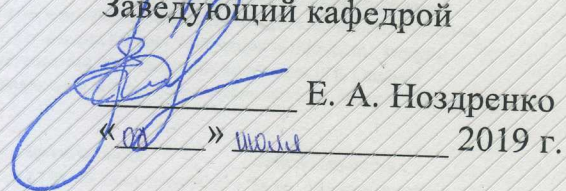 Заведующий кафедрой
Е. А. Ноздренко
« » июля 2019 г.